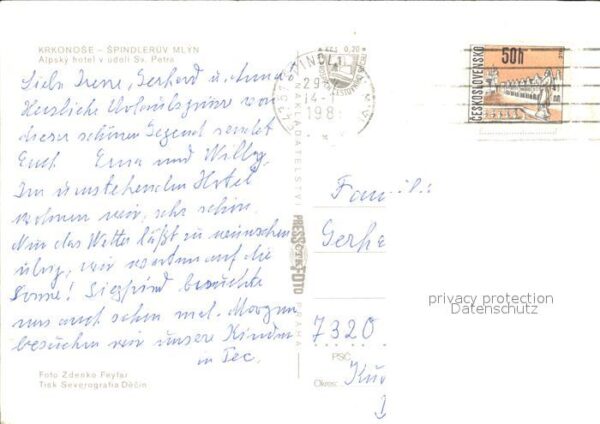 KRKONOŠE – ŠPINDLERŮV MLÝN
Alpský hotel v údolí Sv. Petra
Liebe Irene, Gerhard u.
Herzliche Urlaubsgrüße von
dieser schönen Gegend sendet
Euch Erna und Willy.
Im umstehenden Hotel
wohnen wir, sehr schön.
Nur das Wetter läßt zu wünschen
übrig, wir warten auf die
Sonne! Siegfried besuchte
uns auch schon mal. Morgen
besuchen wir unsere Kinder
in
Foto Zdenko Feyfar
Tisk Severografia Děčín
NAKLADATELSTVÍ
PRESSFOTO
PRAHA
ČESKOSLOVENSKO
50h
Fami
Gerha
7320
PSČ
Okres:
privacy protection
Datenschutz